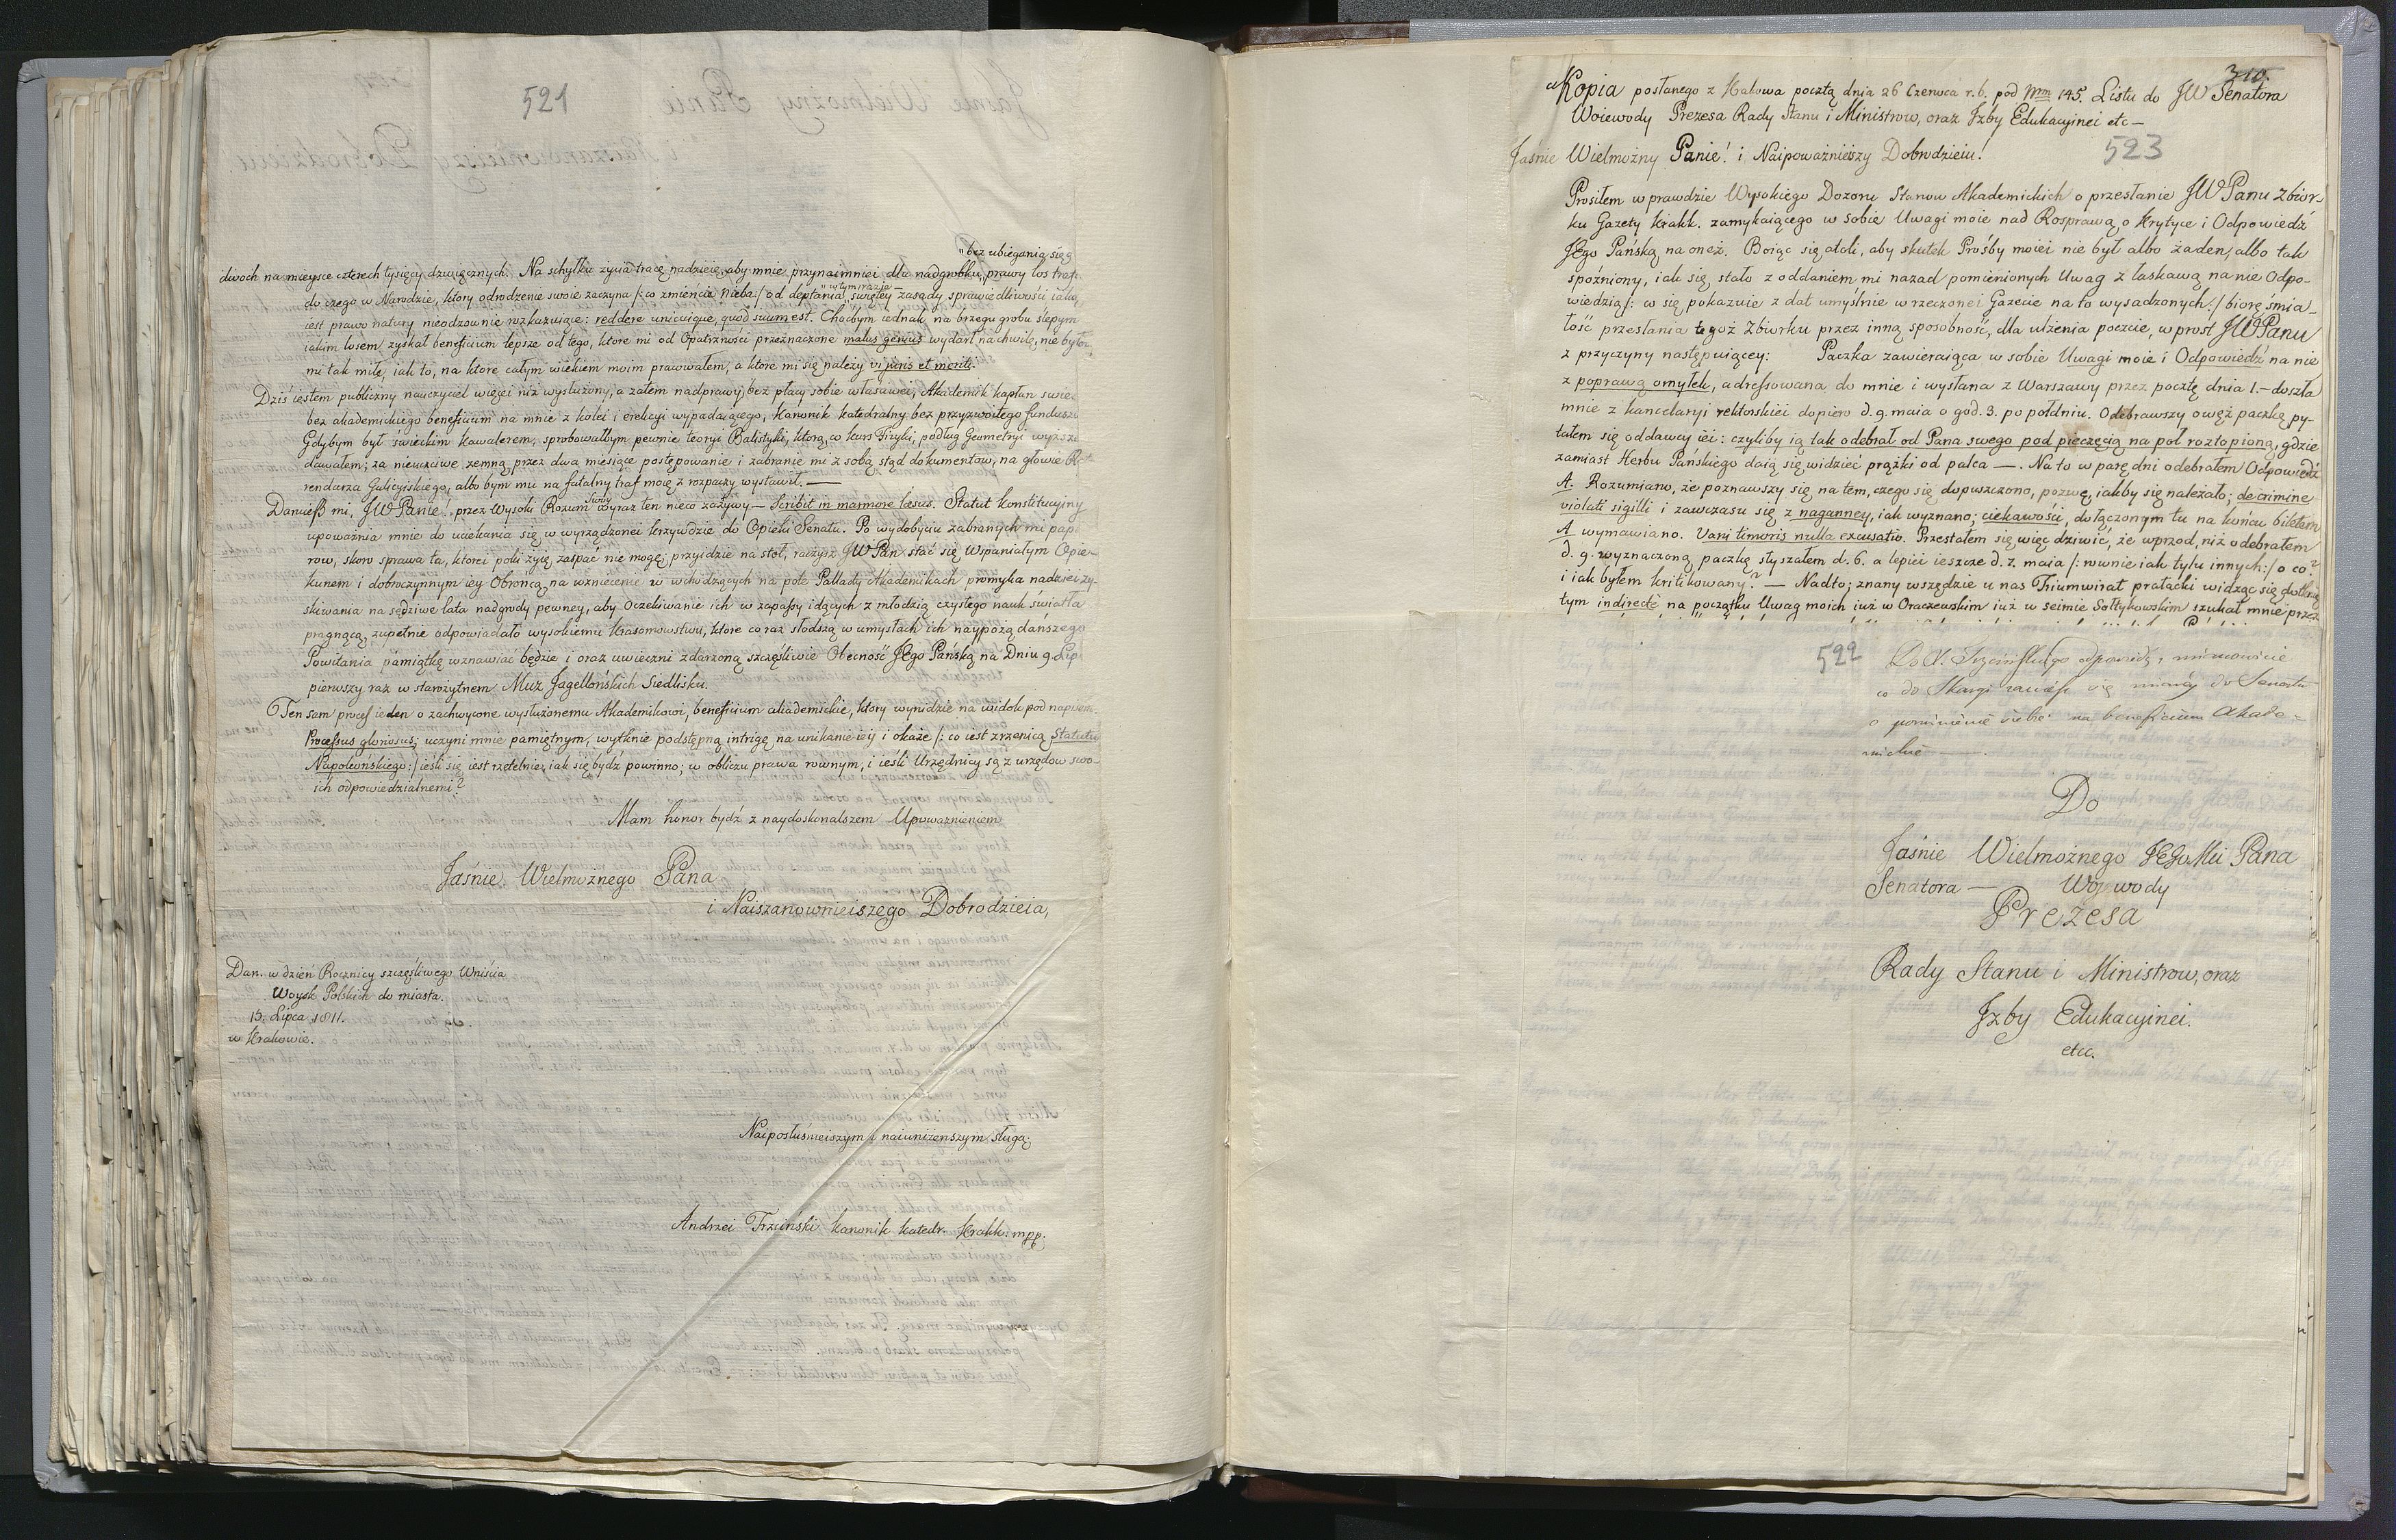 521
"bez ubiegania się
dwoch na mieysce czterech tysięcy dzwięcznych. Na schyłku życia tracę nadzieię, aby mnie przynaimniei dla nadgrobku, prawy los trafił
do czego w Narodzie, ktory odrodzenie swoie zaczyna /: co zmieńcie Nieba :/ od deptania "w tym razie" swiętey zasady sprawiedliwości iaką
iest prawo natury nieodzownie rozkazuiące: reddere unicuique, quod suum est. Choćbym iednak na brzegu grobu ślepym
iakim losem zyskał beneficium lepsze od tego, ktore mi od Opatrzności przeznaczone malus genius wydarł na chwilę, nie było
mi tak miłe, iak to, na ktore całym wiekiem moim pracowałem, a ktore mi się należy vi juris et meriti.
Dziś iestem publiczny nauczyciel więcei niż wysłużony, a zatem nadprawy, bez płacy sobie własciwei, Akademik kapłan swie
bez akademickiego beneficium na mnie z kolei i erekcyi wypadaiącego, Kanonik katedralny bez przyzwoitego funduszu
Gdybym był świeckim kawalerem, sprobowałbym pewnie teoryi Balistyki, ktorą, w kurs Fizyki, podług Geometryi wyższei
dawałem; za nieuczciwe zemną przez dwa miesiące postępowanie i zabranie mi z sobą stąd dokumentow, na głowie Re
rendarza Galicyiskiego, albo bym mu na fatalny traf moię z rozpaczy wystawił. —
Daruiesz mi, JWPanie! przez Wysoki Rozum Swoy wyraz ten nieco zażywy — Scribit in marmore læsus. Statut konstitucyiny
upoważnia mnie do uciekania się w wyrządzonei krzywdzie do Opieki Senatu. Po wydobyciu zabranych mi papi
row, skoro sprawa ta, ktorei poki żyię zaspać nie mogę; przyidzie na stoł, raczysz JWPan stać się Wspaniałym Opie-
kunem i dobroczynnym iey Obroncą, na wzniecenie w wchodzących na pole Pallady Akademikach promyka nadziei zy-
skiwania na sędziwe lata nadgrody pewney, aby Oczekiwanie ich w zapassy idących z młodzią czystego nauk światła
pragnącą, zupełnie odpowiadało wysokiemu krasomowstwu, ktore coraz słodszą w umysłach ich naypożądańszego
Powitania pamiątkę wznawiać będzie i oraz uwieczni zdarzoną szczęśliwie Obecność JEgo Pańską na Dniu 9 Lip
pierwszy raz w starożytnem Muz Jagellońskich Siedlisku.
Ten sam proces ieden o zachwycone wysłużonemu Akademikowi, beneficium akademickie, ktory wynidzie na widok pod napisem
Processus gloriosus; uczyni mnie pamiętnym, wytknie podstępną intrigę na unikanie iey i okaże /: co iest zrzenicą Statutu
Napoleońskiego :/ ieśli się iest rzetelnie, iak się bydź powinno; w obliczu prawa rownym, i ieśli Urzędnicy są z urzędow swo-
ich odpowiedzialnemi?
Mam honor bydź z naydoskonalszem Upoważnieniem
Jaśnie Wielmożnego Pana
i Naiszanownieiszego Dobrodzieia,
Dan. w dzień Rocznicy szczęśliwego Wniścia
Woysk Polskich do miasta.
15. Lipca 1811.
w Krakowie.
Naiposłusznieiszym i naiuniżenszym sługą;
Andrzei Trzciński kanonik katedr. Krakk. mpp.
310.
"Kopia posłanego z Krakowa pocztą dnia 26 Czerwca r. b. pod Nrm 145. Listu do JW Senatora
Woiewody Prezesa Rady Stanu i Ministrow, oraz Jzby Edukacyjnei etc —
523
Jaśnie Wielmożny Panie! i Naipoważnieiszy Dobrodzieiu!
Prosiłem wprawdzie Wysokiego Dozoru Stanow Akademickich o przesłanie JWPanu Zbior-
ku Gazety Krakk. zamykaiącego w sobie Uwagi moie nad Rosprawą o Krytyce i Odpowiedź
JEgo Pańską na oneż. Boiąc się atoli, aby skutek Prośby moiei nie był albo żaden, albo tak
spoźniony, iak się stało z oddaniem mi nazad pomienionych Uwag z łaskawą na nie Odpo-
wiedzią /: co się pokazuie z dat umyślnie w rzeczonei Gazecie na to wysadzonych :/ biorę śmia-
łość przesłania tegoż Zbiorku przez inną sposobność, dla ulżenia poczcie, wprost JWPanu
z przyczyny następuiącey: Paczka zawieraiąca w sobie Uwagi moie i Odpowiedź na nie
z poprawą omyłek, adressowana do mnie i wysłana z Warszawy przez pocztę dnia 1. — doszła
mnie z kancelaryi rektorskiéi dopiero d. 9. maia o god. 3. po połdniu. Odebrawszy owęż paczkę py-
tałem się oddawcy iéi: czyliby ią tak odebrał od Pana swego pod pieczęcią na poł roztopioną, gdzie
zamiast Herbu Pańskiego daią się widzieć prążki od palca —. Na to w parę dni odebrałem Odpowiedź
A. Rozumiano, że poznawszy się na tem, czego się dopuszczono, pozwę, iakby się należało; de crimine
violati sigilli i zawczasu się z nagannej, iak wyznano; ciekawości, dołączonym tu na końcu biletem
A wymawiano. Vani timoris nulla excusatio. Przestałem się więc dziwić, że wprzod, niż odebrałem
d. 9. wyznaczoną paczkę słyszałem d. 6. a lepiéi ieszcze d. 7. maia /: rownie iak tylu innych :/ o co?
i iak byłem kritikowany? — Nadto; znany wszędzie u nas Triumwirat prałacki widząc się dotknię
tym indirectè na początku Uwag moich iuż w Oraczewskim iuż w seimie Sołtykowskim szukał mnie przez
522
Do X. Trzcińskiego odpowiedź, mianowicie
co do Skargi
o pominienie siebie na beneficium Akade-
mickie —.
Do
Jaśnie Wielmożnego JEgoMci Pana
Senatora — Wojewody
Prezesa
Rady Stanu i Ministrow, oraz
Jzby Edukacyjnei.
etcc.